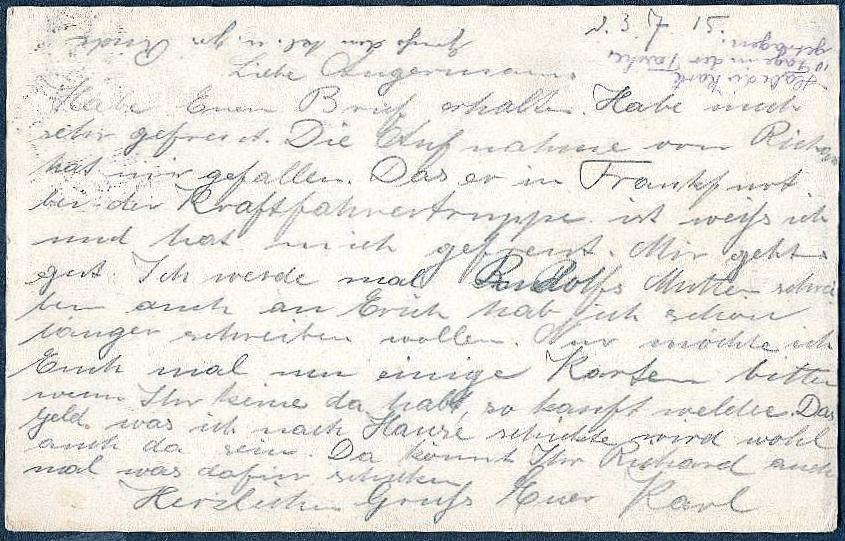 d. 3. 7. 15.
Habe die Karte
10 Tage in der Tasche
getragen.
Liebe Angermanns
Habe Euern Brief erhalten. Habe mich
sehr gefreut. Die Aufnahme von Richard
hat mir gefallen. Das er in Frankfurt
bei der Kraftfahrertruppe ist weiß ich
und hat mich gefreut. Mir geht
gut. Ich werde mal Rudolfs Mutter schrei
ben auch an Erich hab ich schon
langer schreiben wollen. Nur möchte ich
Euch mal um einige Karten bitten
wenn Ihr keine da habt, so kauft welche. Das
Geld was ich nach Hause schickte wird wohl
auch da sein. Da könnt Ihr Richard auch
mal was dafür schicken
Herzlichen Gruß Euer Karl